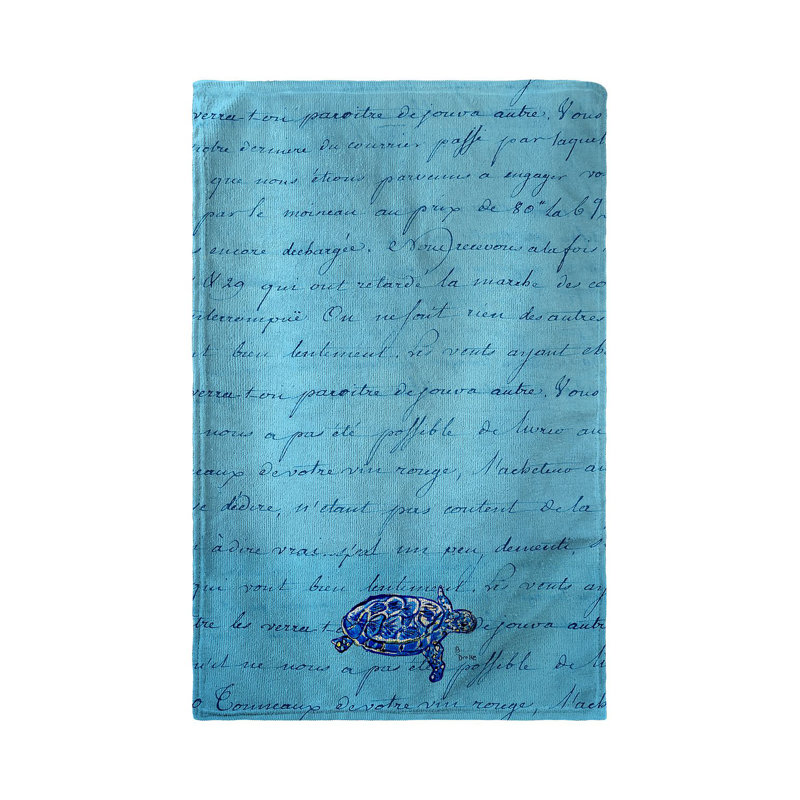 verra t on paroitre de jouva autre. Vous
notre derniere du courrier passé par laquel
que nous étions parvenus a engager vo
par le moineau au prix de 80" la 69
s encore dechargée. Nous recevons a la fois
& 29 qui ont retardé la marche des co
nterrompuë On ne fait rien des autres
t bien lentement. Les vents ayant
verra t on paroitre de jouva autre. Vous
nous a pas été possible de livrer au
eaux de votre vin rouge, l'acheteur a
se dédire, n'étant pas content de la
à dire vrai s'est un peu, dementi,
qui vont bien lentement. Les vents ay
tre les verra t de jouva autre
u'il ne nous a pas été possible de li
Tonneaux de votre vin rouge, l'ach
B. Drake